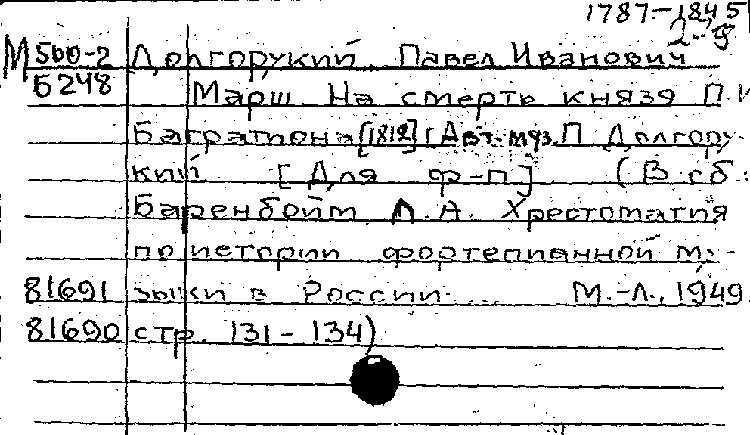 1787-1845
2-й
М 500-2 Долгорукий, Павел Иванович
Б248 Марш. На смерть князя П.И
Багратиона [1812] [Авт. муз. П. Долгору-
кий [Для ф-п] (В сб.:
Баренбойм Л.А. Хрестоматия
по истории фортепианной му-
81691 зыки в России.... М.-Л., 1949
81690 стр. 131-134)